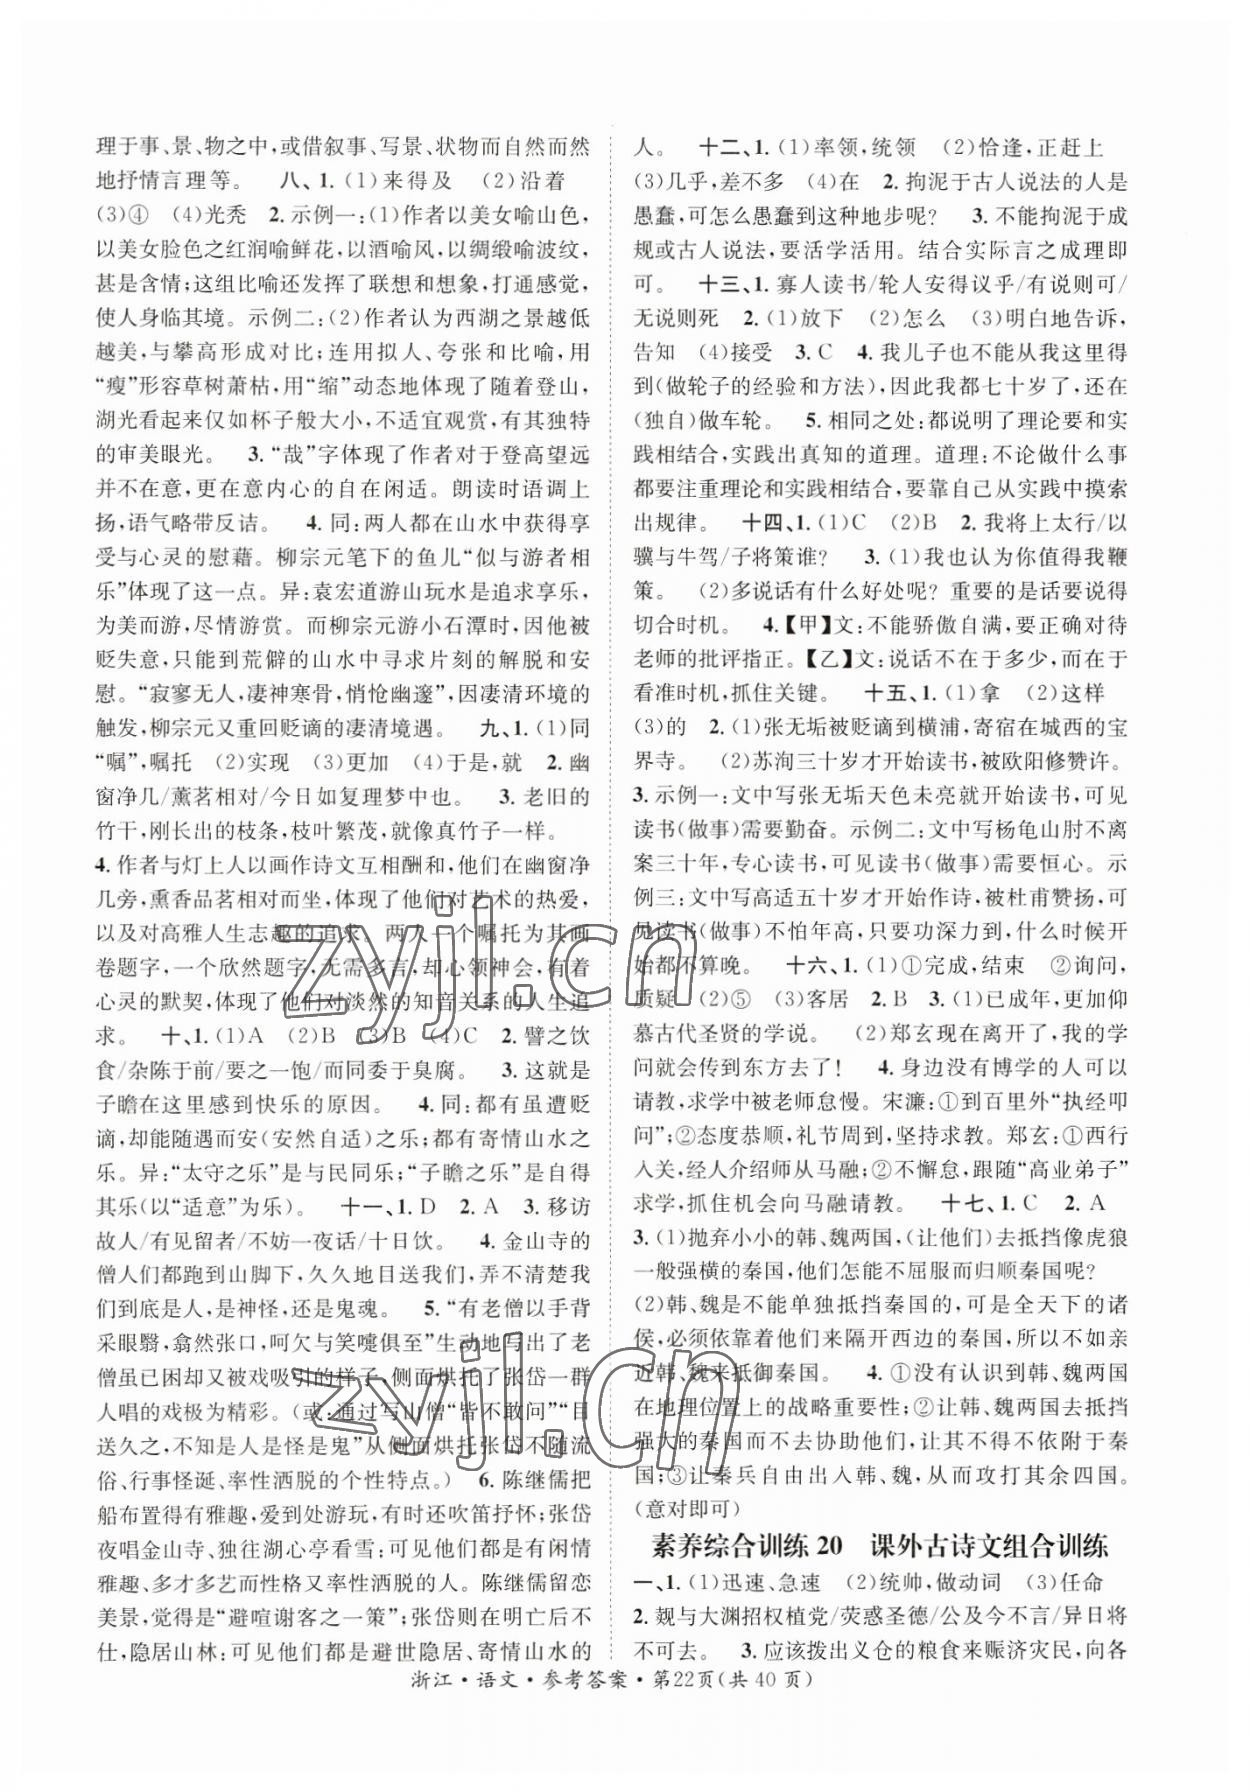 理于事、景、物之中,或借叙事、写景、状物而自然而然
地抒情言理等。 八、1.(1)来得及 (2)沿着
(3)④ (4)光秃 2.示例一:(1)作者以美女喻山色,
以美女脸色之红润喻鲜花,以酒喻风,以绸缎喻波纹,
甚是含情;这组比喻还发挥了联想和想象,打通感觉,
使人身临其境。示例二:(2)作者认为西湖之景越低
越美,与攀高形成对比;连用拟人、夸张和比喻,用
“瘦”形容草树萧枯,用“缩”动态地体现了随着登山,
湖光看起来仅如杯子般大小,不适宜观赏,有其独特
的审美眼光。 3.“哉”字体现了作者对于登高望远
并不在意,更在意内心的自在闲适。朗读时语调上
扬,语气略带反诘。 4.同:两人都在山水中获得享
受与心灵的慰藉。柳宗元笔下的鱼儿“似与游者相
乐”体现了这一点。异:袁宏道游山玩水是追求享乐,
为美而游,尽情游赏。而柳宗元游小石潭时,因他被
贬失意,只能到荒僻的山水中寻求片刻的解脱和安
慰。“寂寥无人,凄神寒骨,悄怆幽邃”,因凄清环境的
触发,柳宗元又重回贬谪的凄清境遇。 九、1.(1)同
“嘱”,嘱托 (2)实现 (3)更加 (4)于是,就 2.幽
窗净几/薰茗相对/今日如复理梦中也。 3.老旧的
竹干,刚长出的枝条,枝叶繁茂,就像真竹子一样。
4.作者与灯上人以画作诗文互相酬和,他们在幽窗净
几旁,熏香品茗相对而坐,体现了他们对艺术的热爱,
以及对高雅人生志趣的追求。两人一个嘱托为其画
卷题字,一个欣然题字,无需多言,却心领神会,有着
心灵的默契,体现了他们对淡然的知音关系的人生追
求。 十、1.(1)A (2)B (3)B (4)C 2.譬之饮
食/杂陈于前/要之一饱/而同委于臭腐。 3.这就是
子瞻在这里感到快乐的原因。 4.同:都有虽遭贬
谪,却能随遇而安(安然自适)之乐;都有寄情山水之
乐。异:“太守之乐”是与民同乐;“子瞻之乐”是自得
其乐(以“适意”为乐)。 十一、1.D 2.A 3.移访
故人/有见留者/不妨一夜话/十日饮。 4.金山寺的
僧人们都跑到山脚下,久久地目送着我们,弄不清楚
我们到底是人,是神怪,还是鬼魂。 5.“有老僧以手背
采眼翳,翕然张口,呵欠与笑嚏俱至”生动地写出了老
僧虽已困却又被戏吸引的样子,侧面烘托了张岱一群
人唱的戏极为精彩。(或:通过写山僧“皆不敢问”“目
送久之,不知是人是怪是鬼”从侧面烘托张岱不随流
俗、行事怪诞、率性洒脱的个性特点。) 6.陈继儒把
船布置得有雅趣,爱到处游玩,有时还吹笛抒怀;张岱
夜唱金山寺、独往湖心亭看雪;可见他们都是富有
雅趣、多才多艺而性格又率性洒脱的人。陈继儒留恋
美景,觉得是“避喧谢客之一策”;张岱则在明亡后不
仕,隐居山林;可见他们都是避世隐居、寄情山水的
人。 十二、1.(1)率领,统领 (2)恰逢,正赶上
(3)几乎,差不多 (4)在 2.拘泥于古人说法的人是
愚蠢,可怎么愚蠢到这种地步呢? 3.不能拘泥于成
规或古人说法,要活学活用。结合实际言之成理即
可。 十三、1.寡人读书/轮人安得议乎/有说则可/
无说则死 2.(1)放下 (2)怎么 (3)明白地告诉,
告知 (4)接受 3.C 4.我儿子也不能从我这里得
到(做轮子的经验和方法),因此我都七十岁了,还在
(独自)做车轮。 5.相同之处:都说明了理论要和实
践相结合,实践出真知的道理。道理:不论做什么事
都要注重理论和实践相结合,要靠自己从实践中摸索
出规律。 十四、1.(1)C (2)B 2.我将上太行/以
骥与牛驾/子将策谁? 3.(1)我也认为你值得我鞭
策。 (2)多说话有什么好处呢?重要的是话要说得
切合时机。 4.【甲】文:不能骄傲自满,要正确对待
老师的批评指正。【乙】文:说话不在于多少,而在于
看准时机,抓住关键。 十五、1.(1)拿 (2)这样
(3)的 2.(1)张无垢被贬谪到横浦,寄宿在城西的宝
界寺。 (2)苏洵三十岁才开始读书,被欧阳修赞许。
3.示例一:文中写张无垢天色未亮就开始读书,可见
读书(做事)需要勤奋。示例二:文中写杨龟山肘不离
案三十年,专心读书,可见读书(做事)需要恒心。示
例三:文中写高适五十岁才开始作诗,被杜甫赞扬,可
见读书(做事)不怕年高,只要功深力到,什么时候开
始都不算晚。 十六、1.(1)①完成,结束 ②询问,
质疑 (2)⑤ (3)客居 2.B 3.(1)已成年,更加仰
慕古代圣贤的学说。 (2)郑玄现在离开了,我的学
问就会传到东方去了! 4.身边没有博学的人可以
请教,求学中被老师怠慢。宋濂:①到百里外“执经叩
问”;②态度恭顺,礼节周到,坚持求教。郑玄:①西行
入关,经人介绍师从马融;②不懈怠,跟随“高业弟子”
求学,抓住机会向马融请教。 十七、1.C 2.A
3.(1)抛弃小小的韩、魏两国,(让他们)去抵挡像虎狼
一般强横的秦国,他们怎能不屈服而归顺秦国呢?
(2)韩、魏是不能单独抵挡秦国的,可是全天下的诸
侯,必须依靠着他们来隔开西边的秦国,所以不如亲
近韩、魏来抵御秦国。 4.①没有认识到韩、魏两国
在地理位置上的战略重要性;②让韩、魏两国去抵挡
强大的秦国而不去协助他们,让其不得不依附于秦
国;③让秦兵自由出入韩、魏,从而攻打其余四国。
(意对即可)
素养综合训练20 课外古诗文组合训练
一、1.(1)迅速、急速 (2)统帅,做动词 (3)任命
2.觌与大渊招权植党/荧惑圣德/公及今不言/异日将
不可去。 3.应该拨出义仓的粮食来赈济灾民,向各
浙江·语文·参考答案·第22页(共40页)
zyjl.cn
zyjl.cn